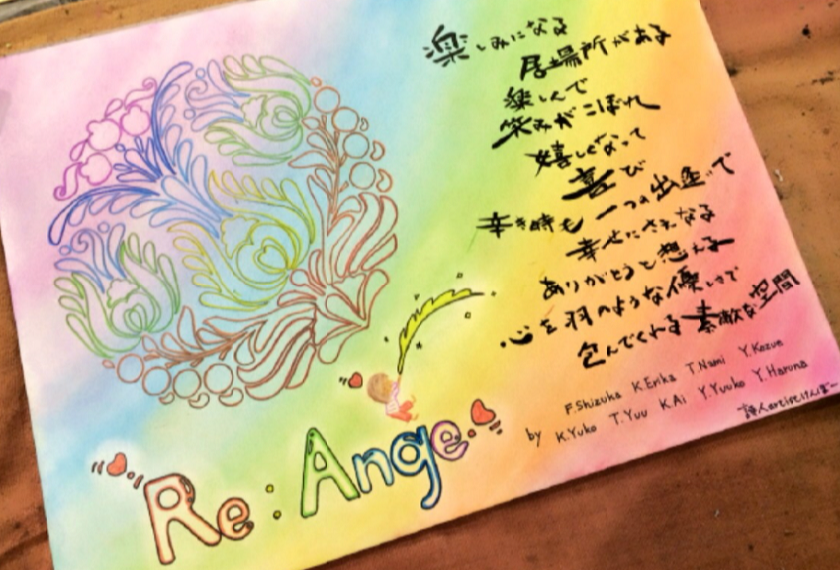 楽しみになる
居場所がある
楽しんで
笑みがこぼれ
嬉しくなって
喜び
一つの出逢いで
辛き時も
幸せにさえなる
ありがとうと想える
心を羽のような優しさで
包んでくれる素敵な空間
F.Shizuka K.Erika T.Nami Y.Kozue
by K.Yuko T.Yuu K.Ai Y.Yuuko Y.Haruna
詩人artistけんぼー
Re:Ange